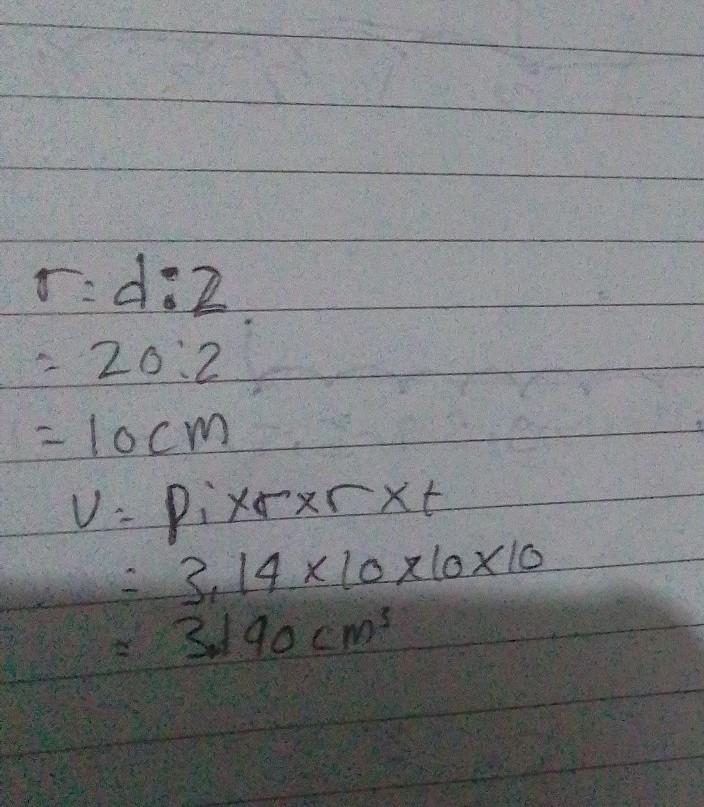 r = d : 2
= 20 : 2
= 10 cm
V = Pi x r x r x t
= 3,14 x 10 x 10 x 10
= 3.140 cm³